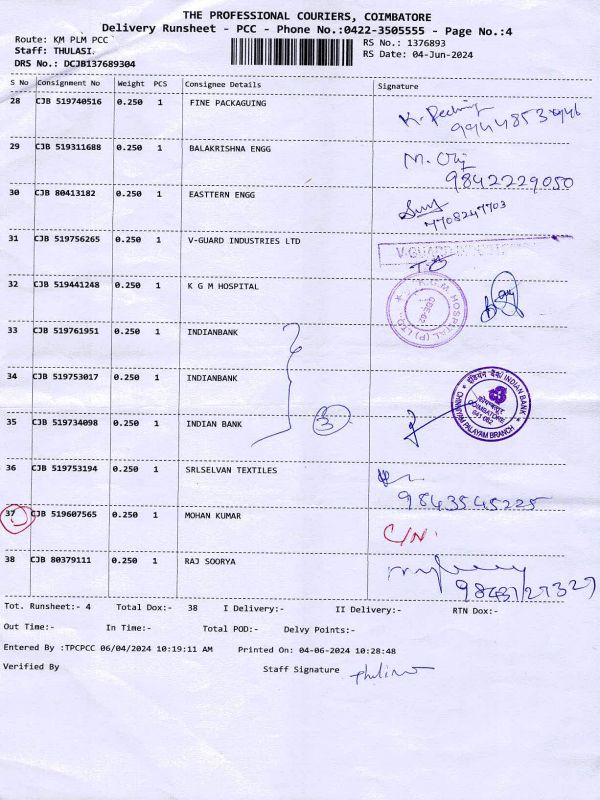 THE PROFESSIONAL COURIERS, COIMBATORE
Delivery Runsheet - PCC - Phone No.:0422-3505555 - Page No.:4
Route: KM PLM PCC
RS No.: 1376893
Staff: THULASI.
RS Date: 04-Jun-2024
DRS No.: DCJB137689304
S No Consignment No Weight PCS Consignee Details Signature
28 CJB 519740516 0.250 1 FINE PACKAGUING
29 CJB 519311688 0.250 1 BALAKRISHNA ENGG
9842229050
30 CJB 80413182 0.250 1 EASTTERN ENGG
7708247703
31 CJB 519756265 0.250 1 V-GUARD INDUSTRIES LTD
V-GUARD
32 CJB 519441248 0.250 1 K G M HOSPITAL
K.G.M HOSPITAL (P) LTD
33 CJB 519761951 0.250 1 INDIANBANK
34 CJB 519753017 0.250 1 INDIANBANK
इंडियन बैंक / INDIAN BANK
कोयम्बत्तूर
COIMBATORE
641 062
CHINNIYAM PALAYAM BRANCH
35 CJB 519734098 0.250 1 INDIAN BANK
3
36 CJB 519753194 0.250 1 SRLSELVAN TEXTILES
9843545225
37 CJB 519607565 0.250 1 MOHAN KUMAR
C/N
38 CJB 80379111 0.250 1 RAJ SOORYA
9843727327
Tot. Runsheet:- 4 Total Dox:- 38 I Delivery:- II Delivery:- RTN Dox:-
Out Time:- In Time:- Total POD:- Delvy Points:-
Entered By :TPCPCC 06/04/2024 10:19:11 AM Printed On: 04-06-2024 10:28:48
Verified By Staff Signature